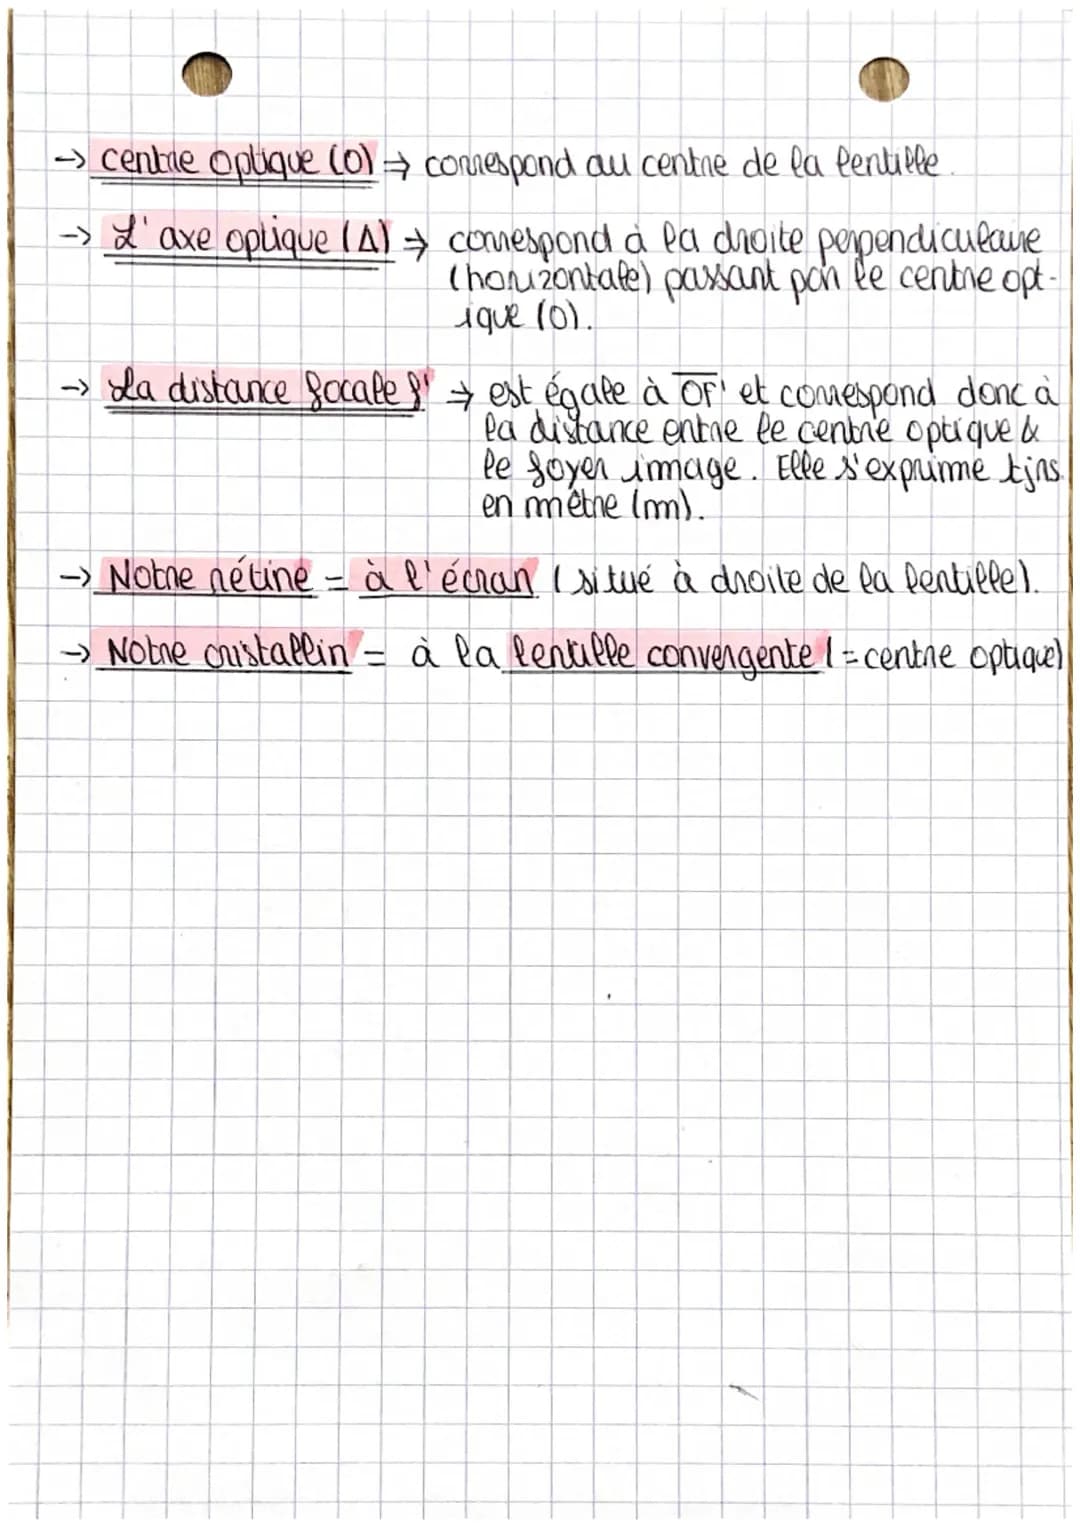 -> centre optique (O) → correspond au centre de la lentille.
-> L'axe optique (Δ) → correspond à la droite perpendiculaire
(horizontale) passant par le centre opt-
ique (O).
-> La distance focale f' → est égale à OF' et correspond donc à
la distance entre le centre optique &
le foyer image. Elle s'exprime tjrs
en mètre (m).
-> Notre rétine = à l'écran (situé à droite de la lentille).
-> Notre cristallin = à la lentille convergente (= centre optique)